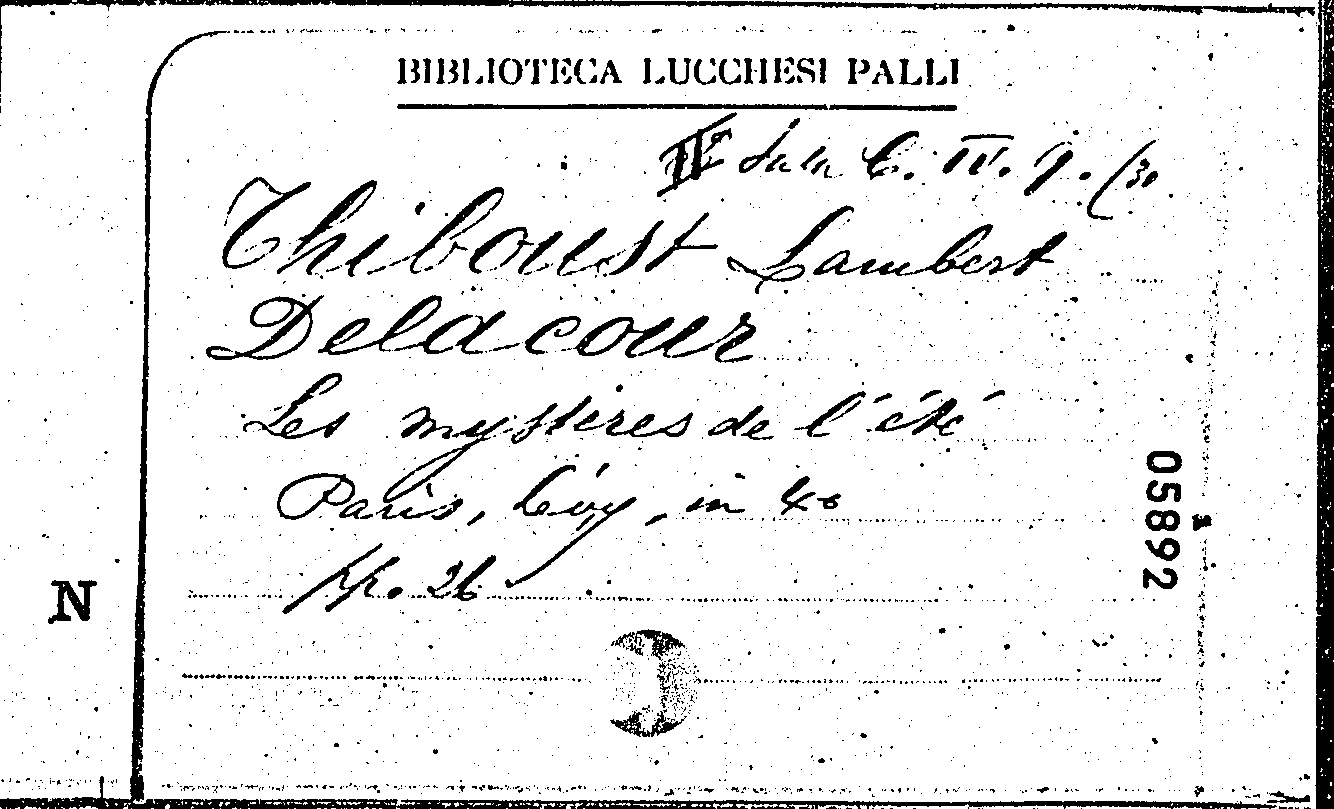 BIBLIOTECA LUCCHESI PALLI
IV Sala C. IV. 9. (30
Thiboust Lambert
Delacour
Les mystères de l'été
Paris, Lévy, in 4o
pp. 26
05892
N